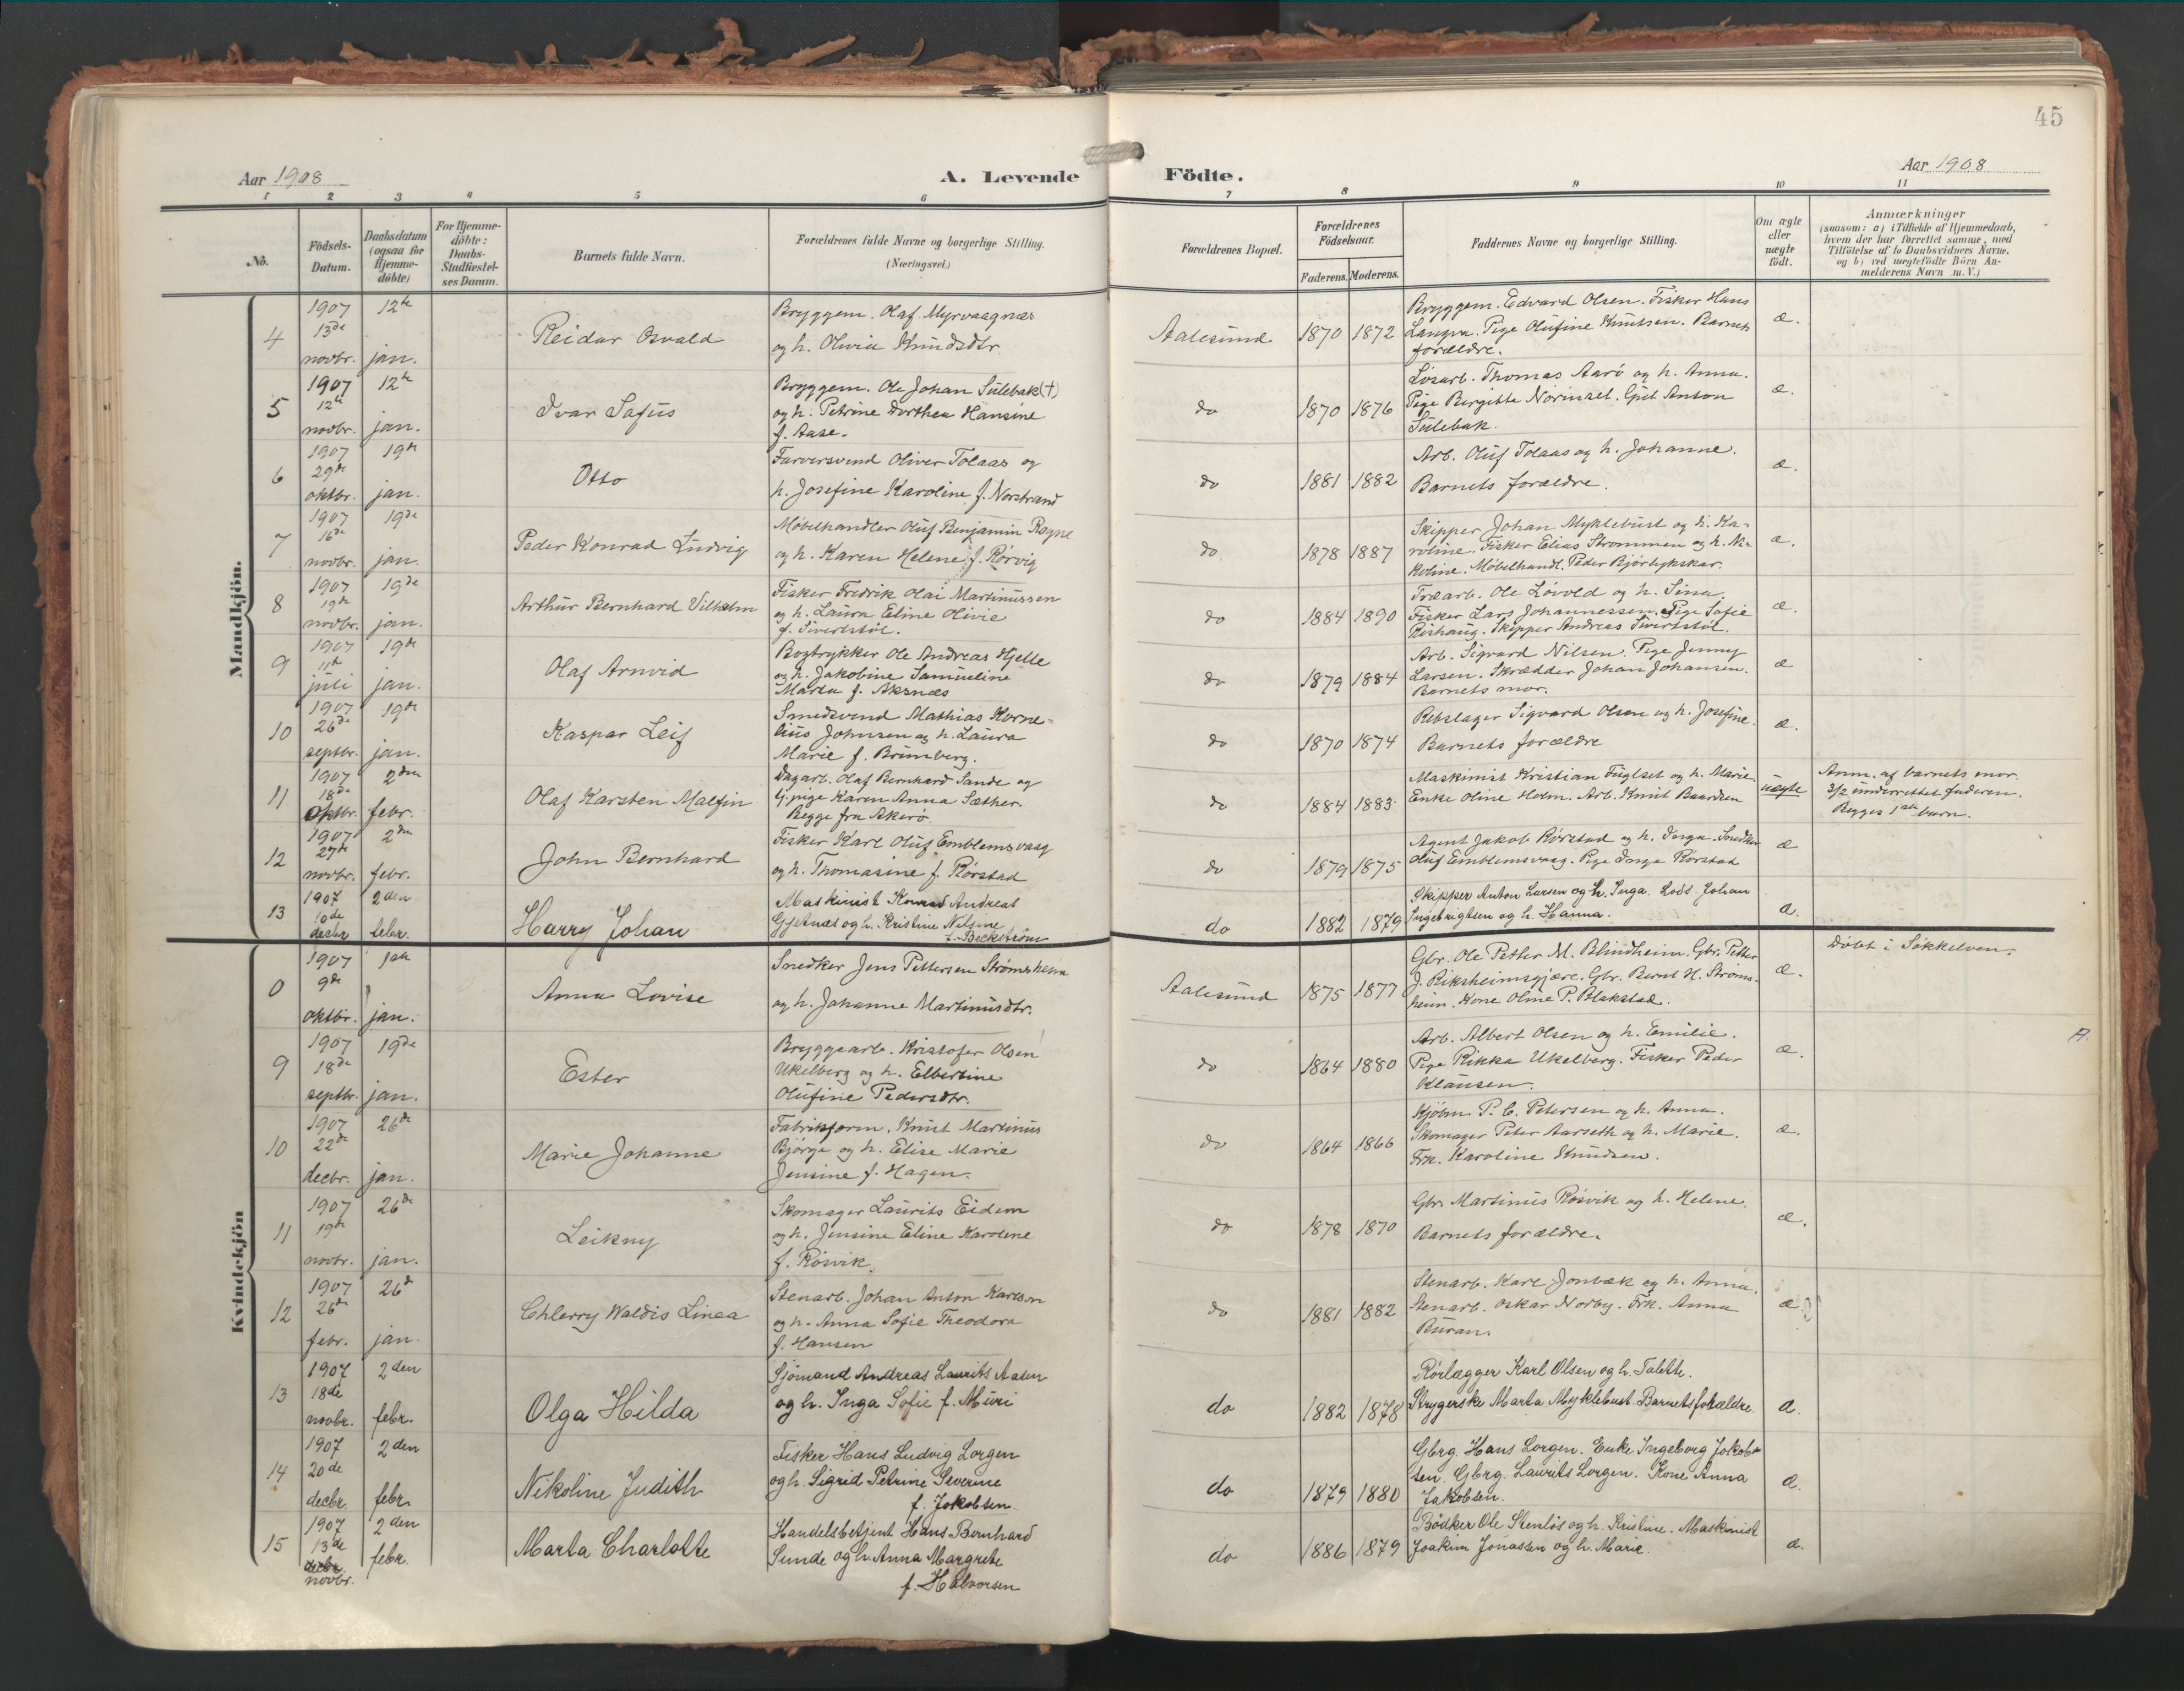 45
Aar 1908
A. Levende
Födte.
Aar 1908
1 2 3 4 5 6 7 8 9 10 11
No.
Födsels-Datum.
Daabsdatum (ogsaa för Hjemme-döbte)
For Hjemme-döbte: Daabs-Stadfæstel-ses Datum.
Barnets fulde Navn.
Forældrenes fulde Navne og borgerlige Stilling. (Næringsvei.)
Forældrenes Bopæl.
Forældrenes Födselsaar.
Faderens. Moderens.
Faddernes Navne og borgerlige Stilling.
Om ægte eller uægte födt.
Anmærkninger
(saasom: a) i Tilfælde af Hjemmedaab,
hvem der har forrettet samme, med
Tilföielse af to Daabsvidners Navne.
og b) ved uægtefödte Börn An-
melderens Navn m. V.)
Mandkjön.
4 1907 13de novbr. 12te jan. Reidar Osvald
Bryggem. Olaf Myrvaagnæs
og h. Olivia Knudsdtr.
Aalesund 1870 1872
Bryggem. Edvard Olsen. Fisker Hans
Langva. Pige Olufine Knutsen. Barnets
forældre.
æ.
5 1907 12te novbr. 12te jan. Ivar Sofus
Bryggem. Ole Johan Sulebak (†)
og h. Petrine Dorthea Hansine
f. Aase.
do 1870 1876
Løsarb. Thomas Aarø og h. Anna.
Pige Birgitte Norinset. Gut Anton
Sulebak.
æ.
6 1907 29de oktbr. 19de jan. Otto
Farversvend Oliver Tolaas og
h. Josefine Karoline f. Norstrand
do 1881 1882
Arb. Oluf Tolaas og h. Johanne.
Barnets forældre.
æ.
7 1907 16de novbr. 19de jan. Peder Konrad Ludvig
Møbelhandler Oluf Benjamin Rogne
og h. Karen Helene f. Rørvig
do 1878 1887
Skipper Johan Myklebust og h. Ka-
roline. Fisker Elias Strømmen og h. Ni-
koline. Møbelhandl. Peder
æ.
8 1907 19de novbr. 19de jan. Arthur Bernhard Vilhelm
Fisker Fredrik Olai Martinussen
og h. Laura Eline Olivie
f. Sivertstøl.
do 1884 1890
Træarb. Ole Løvold og h. Sina.
Fisker Lars Johannessen. Pige Sofie
Rishaug. Skipper Andreas Sivertstøl.
æ.
9 1907 11te juli 19de jan. Olaf Arnvid
Bogtrykker Ole Andreas Hjelle
og h. Jakobine Samueline
Marta f. Aksnæs
do 1879 1884
Arb. Sigvard Nilsen. Pige Jenny
Larsen. Skrædder Johan Johansen.
Barnets mor.
æ
10 1907 26de septbr. 19de jan. Kaspar Leif
Smedsvend Mathias Korne-
lius Johnsen og h. Laura
Marie f. Brunberg.
do 1870 1874
Rebslager Sigvard Olsen og h. Josefine.
Barnets forældre
æ.
11 1907 18de oktbr. 2den febr. Olaf Karsten Malfin
Dagarb. Olaf Bernhard Sande og
tj. pige Karen Anna Sæther.
Begge fra Akerø.
do 1884 1883
Maskinist Kristian Fuglset og h. Marie.
Enke Oline Holm. Arb. Knut Baardsen
uægte
Anm. af barnets mor.
3/2 underrettet faderen.
Begges 1ste barn.
12 1907 27de novbr. 2den febr. John Bernhard
Fisker Karl Oluf Emblemsvaag
og h. Thomasine f. Rørstad
do 1879 1875
Agent Jakob Rørstad og h. Dorga. Snedker
Oluf Emblemsvaag. Pige Inga Rørstad
æ
13 1907 10de decbr. 2den febr. Harry Johan
Maskinist Konrad Andreas
Gjetnæs og h. Kristine Nilsine
f. Beckstrøm
do 1882 1879
Skipper Anton Larsen og h. Inga. Lods Johan
Ingebrigtsen og h. Hanna.
æ.
Kvindekjön
0 1907 9de oktbr. 1ste jan. Anna Lovise
Snedker Jens Pettersen Strømsheim
og h. Johanne Martinusdtr.
Aalesund 1875 1877
Gbr. Ole Petter M. Blindheim. Gbr. Petter
J. Riksheimsgjære. Gbr. Bernt H. Strøms-
heim. Kone Oline P. Blakstad.
æ.
Døbt i Søkkelven.
9 1907 18de septbr. 19de jan. Ester
Bryggearb. Kristofer Olsen
Ukelberg og h. Elbertine
Olufine Pedersdtr.
do 1864 1880
Arb. Albert Olsen og h. Emilie.
Pige Rikka Ukelberg. Fisker Peder
Klausen.
æ.
10 1907 22de decbr. 26de jan. Marie Johanne
Fabrikform. Knut Martinus
Bjørge og h. Elise Marie
Jensine f. Hagen.
do 1864 1866
Kjøbm. P. C. Petersen og h. Anna.
Skomager Peter Aarseth og h. Marie.
Frk. Karoline Knudsen.
æ.
11 1907 19de novbr. 26de jan. Leikny
Skomager Laurits Eidem
og h. Jensine Eline Karoline
f. Røsvik.
do 1878 1870
Gbr. Martinus Røsvik og h. Helene.
Barnets forældre.
æ.
12 1907 26de febr. 26d jan. Chlerry Waldis Linea
Stenarb. Johan Anton Karlson
og h. Anna Sofie Theodora
f. Hansen
do 1881 1882
Stenarb. Karl Jonbæk og h. Anna.
Stenarb. Oskar Norby. Frk. Anna
Buran.
æ
13 1907 18de novbr. 2den febr. Olga Hilda
Sjømand Andreas Laurits Aasen
og h. Inga Sofie f. Muri
do 1882 1878
Rørlægger Karl Olsen og h. Talette.
Strygerske Marta Myklebust. Barnets forældre.
æ.
14 1907 20de decbr. 2den febr. Nikoline Judith
Fisker Hans Ludvig Lorgen
og h. Sigrid Petrine Severine
f. Jakobsen.
do 1879 1880
Gbrg. Hans Lorgen. Enke Ingeborg Jakob-
sen. Gbrg. Laurits Lorgen. Kone Anna
Jakobsen.
æ.
15 1907 13de decbr. novbr. 2den febr. Marta Charlotte
Handelsbetjent Hans Bernhard
Sunde og h. Anna Margrete
f. Halvorsen
do 1886 1879
Bødker Ole Stenløs og h. Kristine. Maskinist
Joakim Jonassen og h. Marie.
æ.